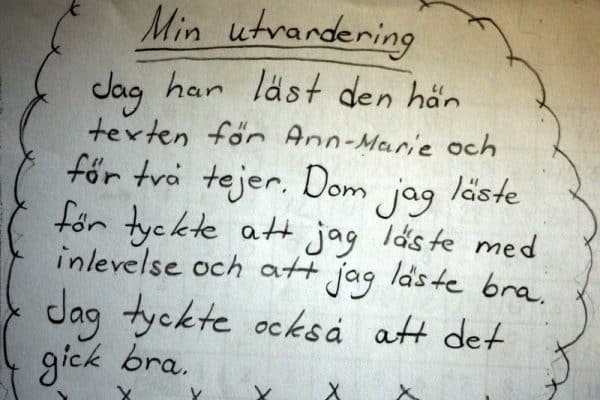 Min utvardering
Jag har läst den här
texten för Ann-Marie och
för två tejer. Dom jag läste
för tyckte att jag läste med
inlevelse och att jag läste bra.
Jag tyckte också att det
gick bra.